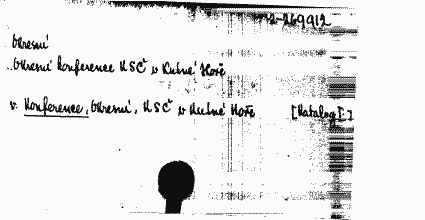 Okresní
Okresní konference KSČ v Kutné Hoře
v. Konference, Okresní, KSČ v Kutné Hoře [Katalog].